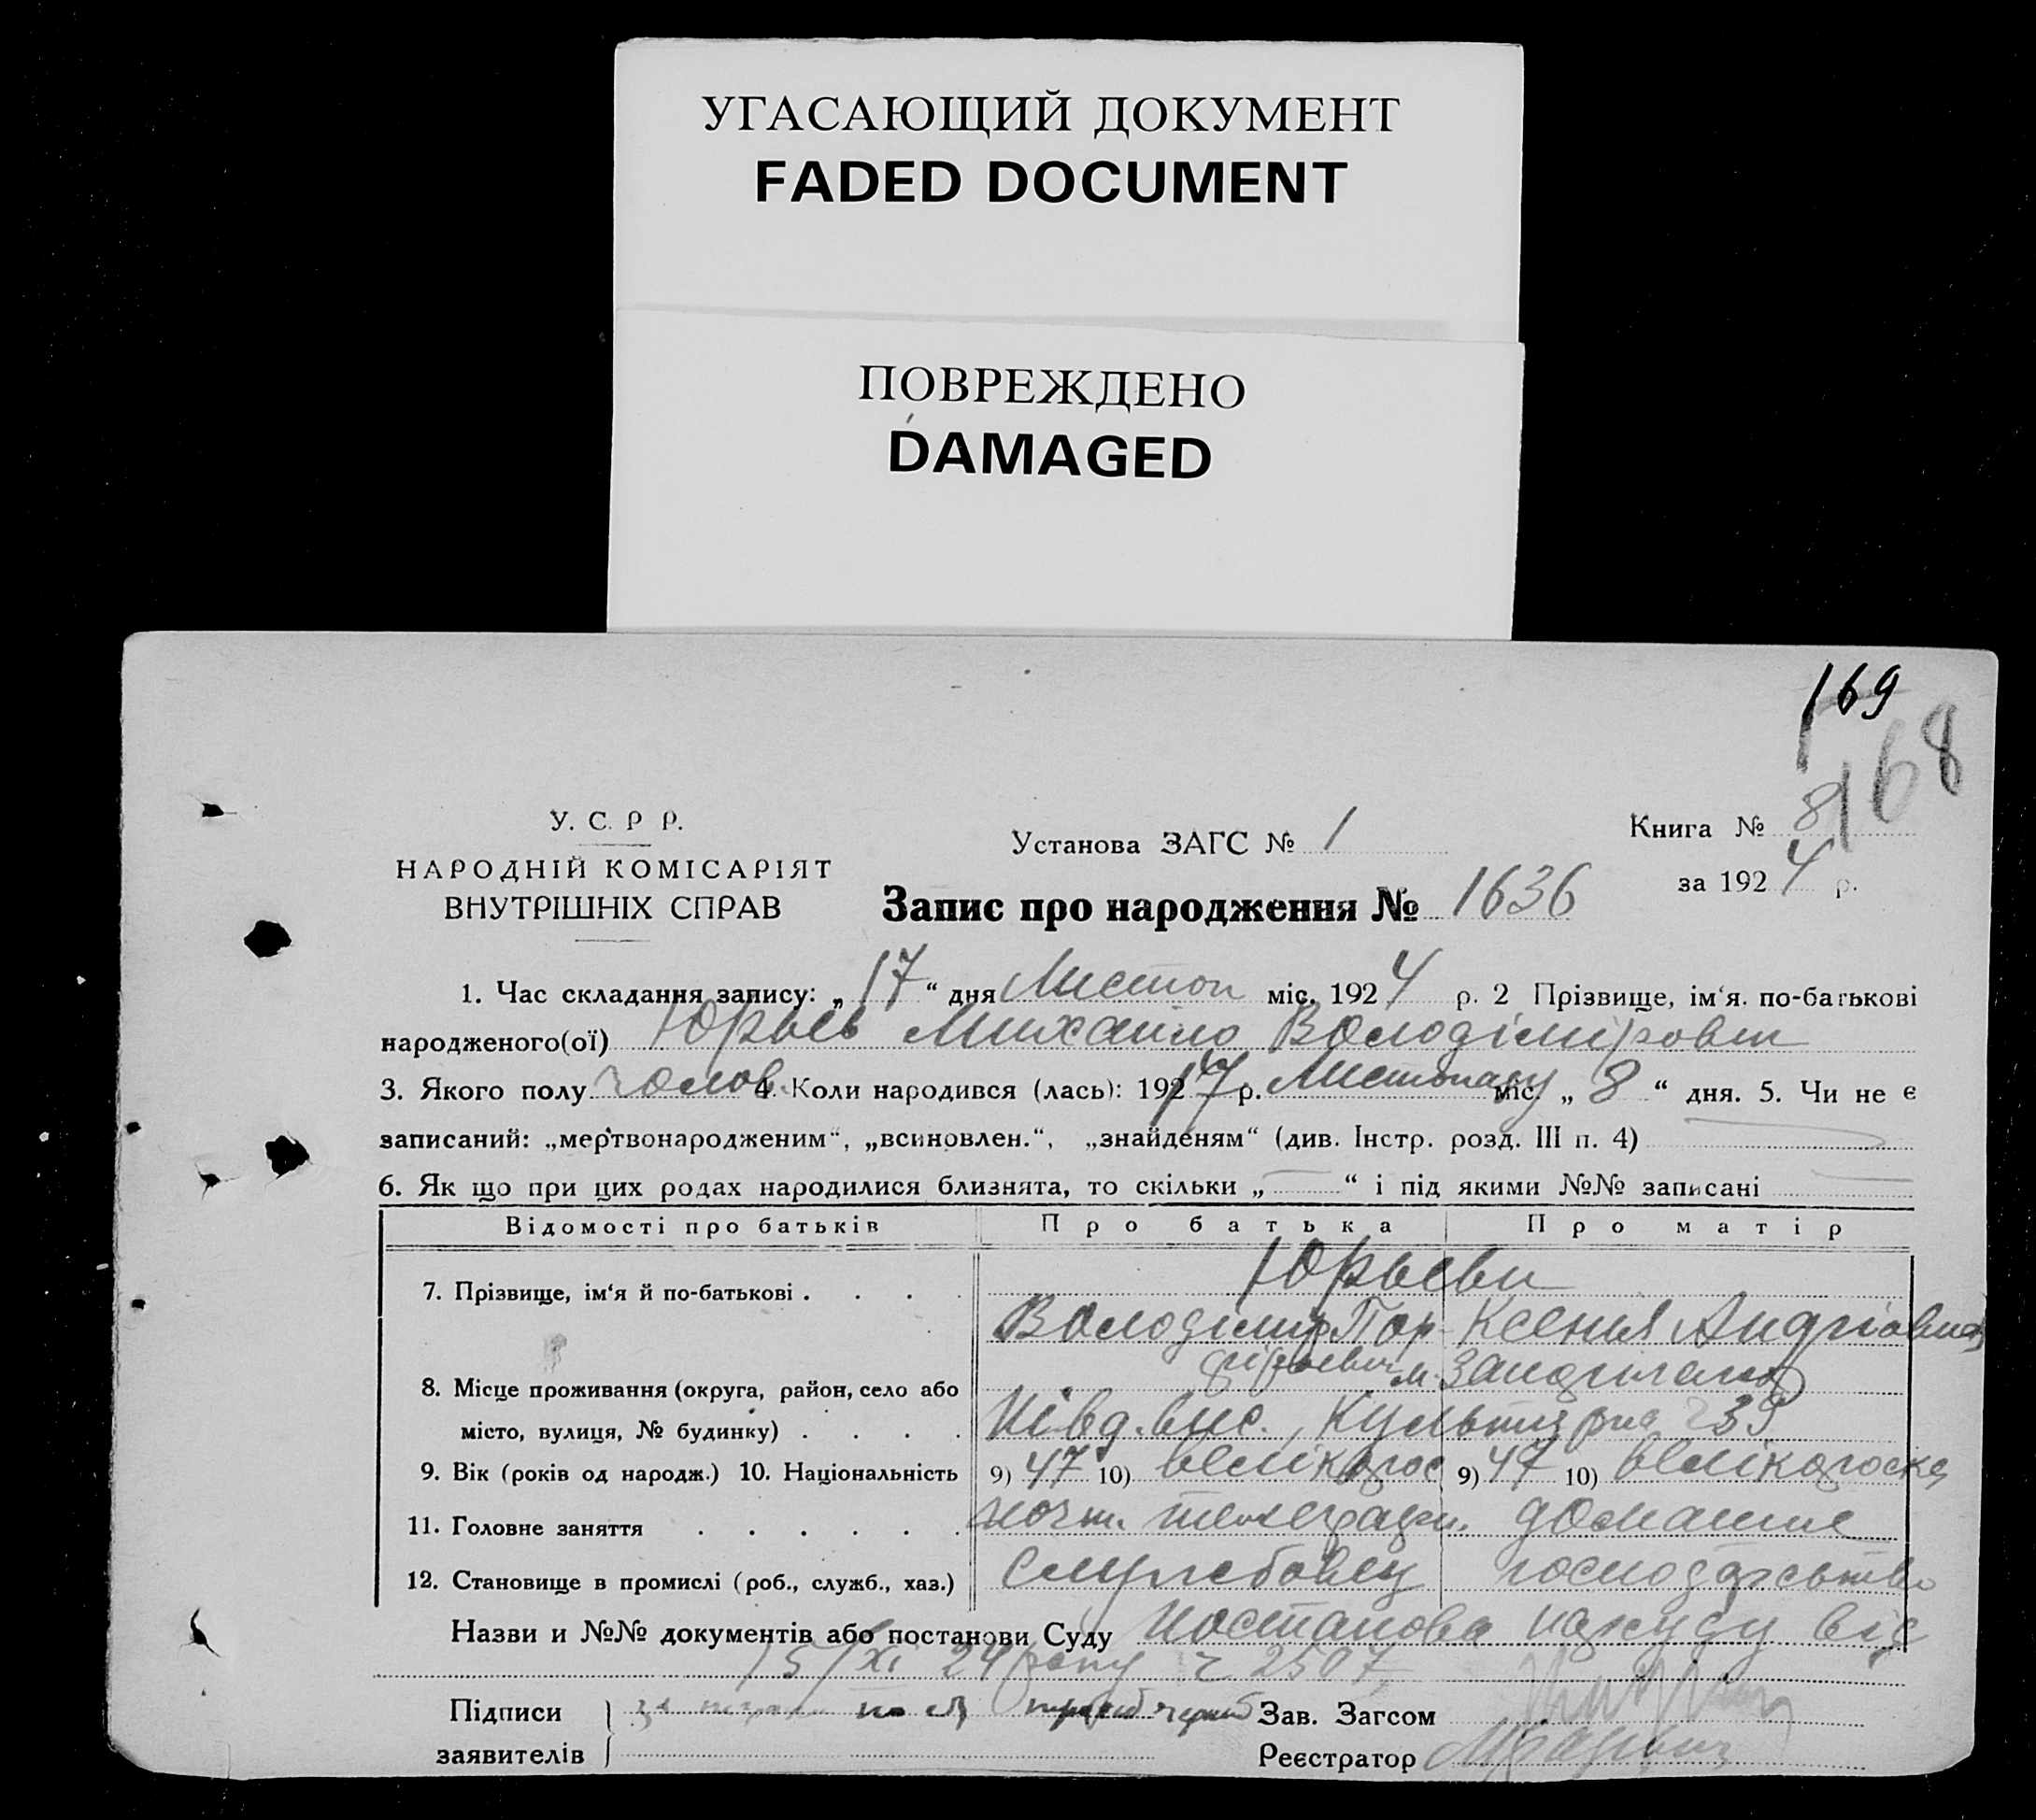 УГАСАЮЩИЙ ДОКУМЕНТ
FADED DOCUMENT
ПОВРЕЖДЕНО
DAMAGED
169
168
У. С. Р Р.
НАРОДНІЙ КОМІСАРІЯТ
ВНУТРІШНІХ СПРАВ
Установа ЗАГС № 1
Книга № 8
за 1924 р.
Запис про народження № 1636
1. Час складання запису: „17“ дня Листоп міс. 1924 р. 2 Прізвище, ім‘я. по-батькові
народженого(ої) Юрьев Михаило Володімірович
3. Якого полу чолов. 4. Коли народився (лась): 1917 р. Листопаду міс. „8“ дня. 5. Чи не є
записаний: „мертвонародженим“, „всиновлен.“, „знайденям“ (див. Інстр. розд. III п. 4)
6. Як що при цих родах народилися близнята, то скільки „ “ і під якими №№ записані
Відомості про батьків Про батька Про матір
7. Прізвище, ім‘я й по-батькові . . . . Юрьеви
Володімир Пор- Ксенія Андріовна
фірьевич
8. Місце проживання (округа, район, село або
місто, вулиця, № будинку) . . . . Півд. вис., Культурна 39
9. Вік (років од народж.) 10. Національність 9) 47 10) велікорос 9) 47 10) велікороска
11. Головне заняття . . . . . . почт. телеграф. домашнє
12. Становище в промислі (роб., служб., хаз.) Службовец господарьство
Назви и №№ документів або постанови Суду Постанова нарсуду від
15/XI 24 року ч 2507
Підписи
заявителів
Зав. Загсом
Реєстратор